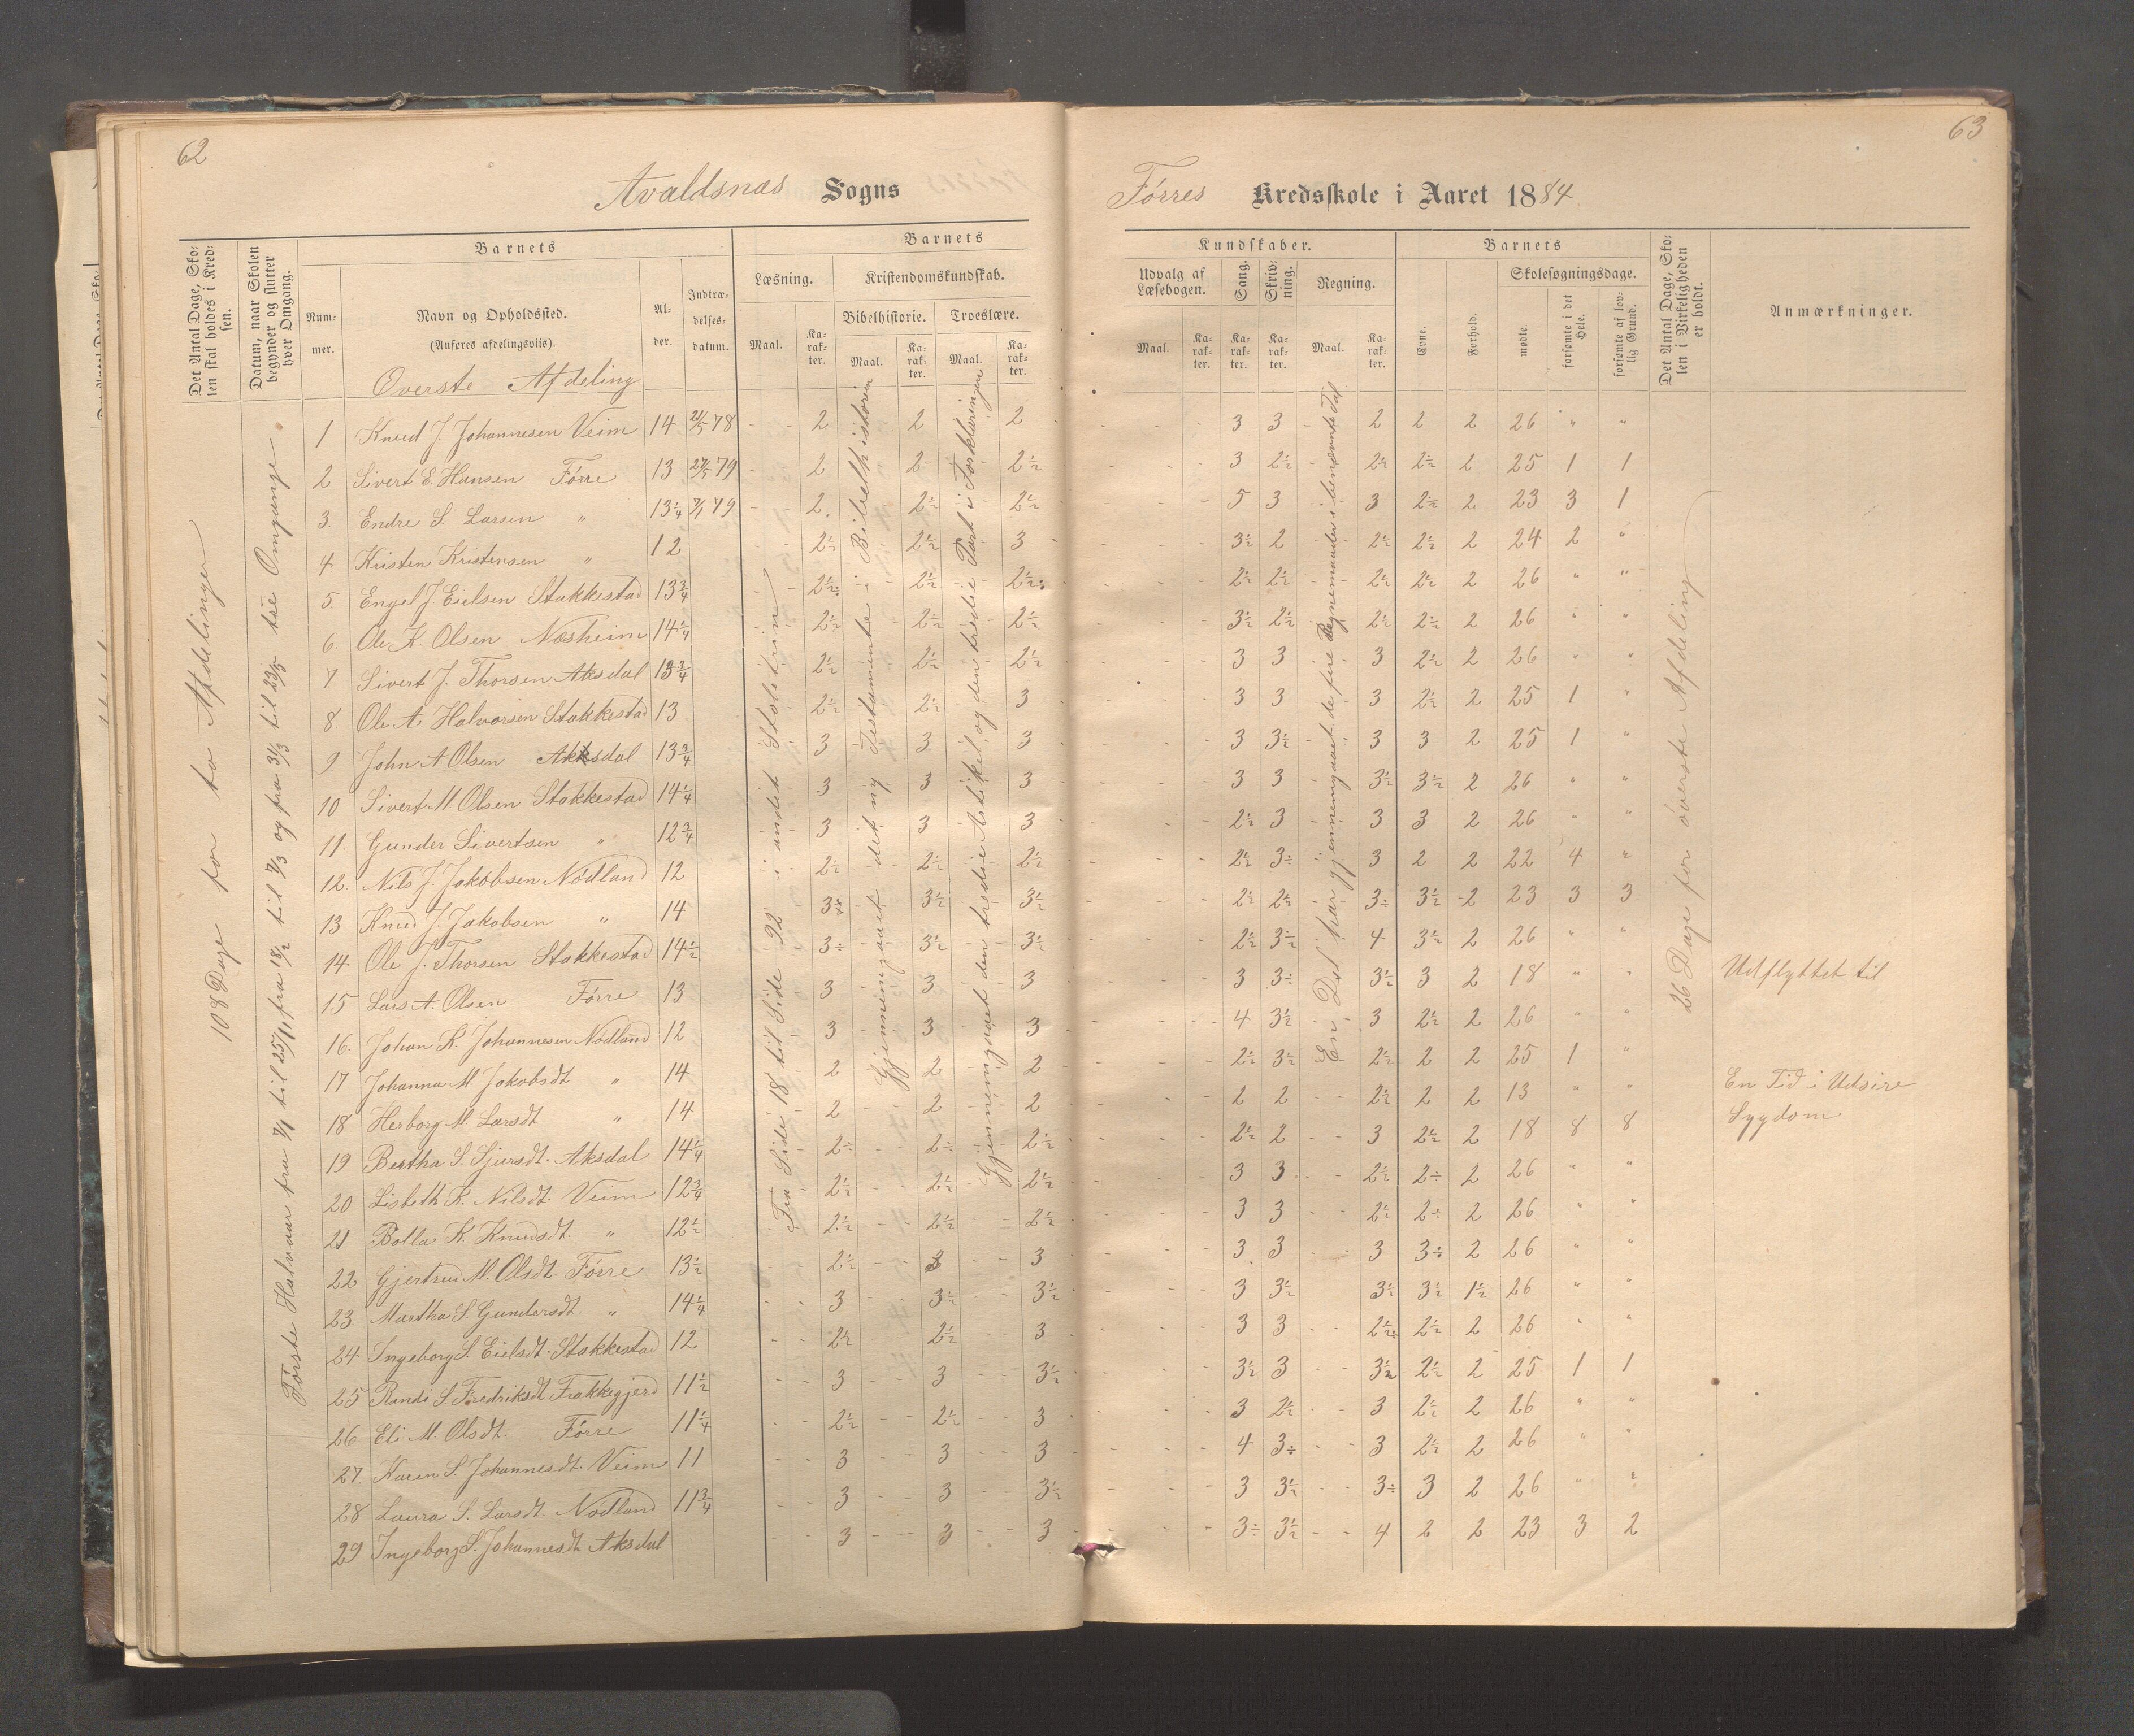 62
Avaldsnæs Sogns
Det Antal Dage, Sko-
len skal holdes i Kred-
sen.
Datum, naar Skolen
begynder og slutter
hver Omgang.
Barnets
Num-
mer.
Navn og Opholdssted.
(Anføres afdelingsvils).
Al-
der.
Indtræ-
delses-
datum.
Barnets
Læsning.
Maal.
Ka-
rak-
ter.
Kristendomskundskab.
Bibelhistorie.
Maal.
Ka-
rak-
ter.
Troeslære.
Maal.
Ka-
rak-
ter.
Överste Afdeling
108 Dage for to Afdelinger
Förste Halvaar fra 7/1 til 25/1, fra 18/2 til 7/3 og fra 31/3 til 23/5 tre Omgange.
Fra Side 18 til Side 22 i andet Skoletrin
Gjennemgaaet det ny Testamente i Bibelhistorien
Gjennemgaaet den tredie Artikel og den tredie Part i Forklaringen
1 Knud J. Johannesen Veim 14 21/5 78 2 2 2
2 Sivert E. Hansen Förre 13 27/5 79 2 2 2½
3. Endre S. Larsen " 13¼ 7/1 79 2. 2½ 2½
4. Kristen Kristensen " 12 2½ 2½ 3
5. Engel J. Eielsen Stakkestad 13¾ 2½ 2½ 2½
6. Ole K. Olsen Næsheim 14¼ 2½ 2½ 2½
7. Sivert J. Thorsen Aksdal 13¾ 2½ 2½ 2½
8. Ole A. Halvorsen Stakkestad 13 2½ 2½ 3
9 John A. Olsen Aksdal 13¾ 3 3 3
10 Sivert M. Olsen Stakkestad 14¼ 3 3 3
11. Gunder Sivertsen " 12¾ 3 3 3
12. Nils J. Jakobsen Nödland 12 2½ 2½ 2½
13 Knud J. Jakobsen " 14 3½ 3½ 3½
14 Ole J. Thorsen Stakkestad 14½ 3÷ 3½ 3½
15 Lars A. Olsen Förre 13 3 3 3
16. Johan K. Johannesen Nödland 12 3 3 3
17 Johanna M. Jakobsdt " 14 2 2 2
18 Herborg M. Larsdt " 14 2 2 2
19 Bertha S. Sjursdt. Aksdal 14¼ 2÷ 2÷ 2½
20 Lisbeth K. Nilsdt. Veim 12¾ 2½ 2½ 2½
21 Bolla K. Knudsdt. " 12½ 2½ 2½ 2½
22 Gjertrud M. Olsdt. Förre 13½ 2½ 3 3
23. Martha S. Gundersdt. " 14¼ 3 3½ 3½
24 Ingeborg S. Eielsdt. Stakkestad 12 2½ 2½ 3
25 Randi S. Fredriksdt Frakkegjerd 11½ 3 3 3½
26 Eli M. Olsdt. Förre 11¼ 2½ 2½ 3
27. Karen S. Johannesdt. Veim 11 3 3 3
28 Laura S. Larsdt. Nödland 11¾ 3 3 3½
29 Ingeborg S. Johannesdt. Aksdal 3 3 3
63
Förres Kredsskole i Aaret 1884.
Kundskaber.
Udvalg af
Læsebogen.
Maal.
Ka-
rak-
ter.
Sang.
Ka-
rak-
ter.
Skriv-
ning.
Ka-
rak-
ter.
Regning.
Maal.
Ka-
rak-
ter.
Barnets
Evne.
Forhold.
Skolesøgningsdage.
mødte.
forsømte i det
Hele.
forsømte af lov-
lig Grund.
Det Antal Dage, Sko-
len i Virkeligheden
er holdt.
Anmærkninger.
En Del har gjennemgaaet de fire Regnemaader i benævnte Tal
26 Dage for överste Afdeling
3 3 2 2 2 26 " "
3 2½ 2½ 2½ 2 25 1 1
5 3 3 2½ 2 23 3 1
3½ 2 2½ 2½ 2 24 2 "
2½ 2½ 2½ 2½ 2 26 " "
3½ 2½ 2½ 2½ 2 26 " "
3 3 3 2½ 2 26 " "
3 3 3 2½ 2 25 1 "
3 3½ 3 3 2 25 1 "
3 3 3½ 3½ 2 26 " "
2½ 3 3 3 2 26 " "
2½ 3÷ 3 2 2 22 4 "
2½ 2½ 3÷ 3½ 2 23 3 3
2½ 3½ 4 3½ 2 26 " "
3 3÷ 3½ 3 2 18 " " Udflyttet til
4 3½ 3 2½ 2 26 " "
2½ 3½ 2½ 2 2 25 1 "
2 2 2½ 2 2 13 " " En Tid i Udsire
2½ 2 3 2½ 2 18 8 8 Sygdom
3 3 2½ 2÷ 2 26 " "
3 3 2½ 2÷ 2 26 " "
3 3 3 3÷ 2 26 " "
3 3½ 3½ 3½ 1½ 26 " "
3 3 2½ 2½ 2 26 " "
3½ 3 3½ 2½ 2 25 1 1
3 2½ 3 2½ 2 26 " "
4 3÷ 3 2½ 2 26 " "
3 3½ 3÷ 3 2 26 " "
3÷ 3½ 4 2 2 23 3 2